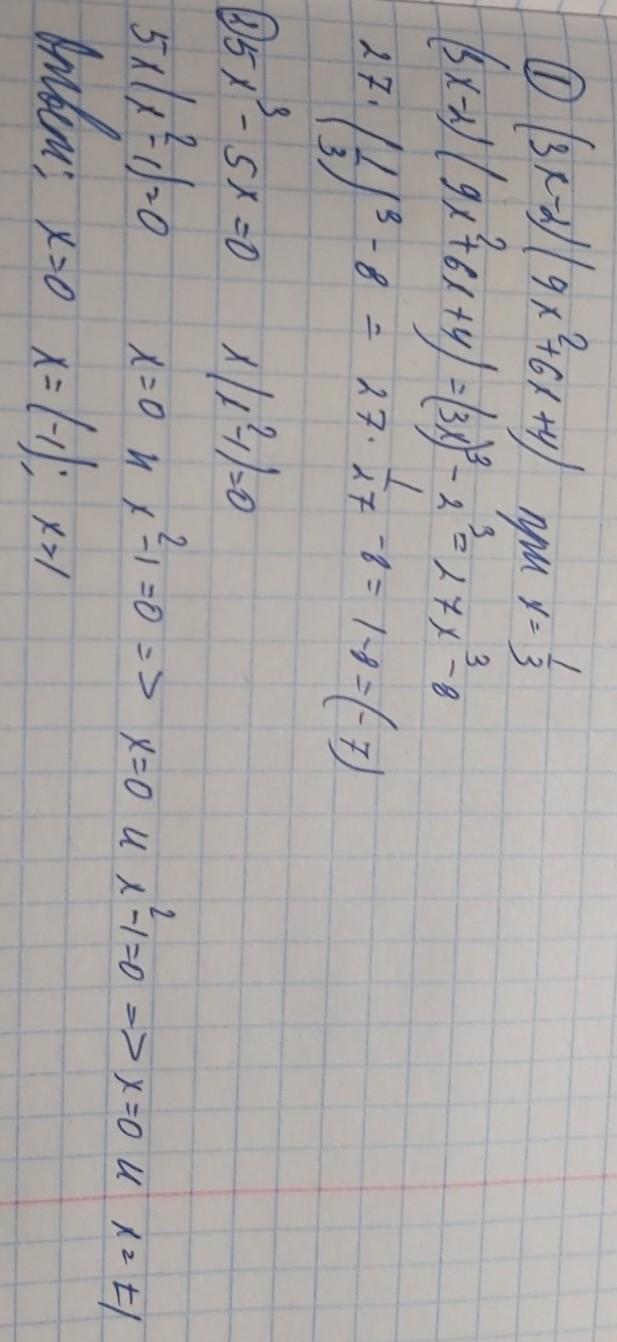 ① (3x-2)(9x²+6x+4) при x=1/3
(3x-2)(9x²+6x+4)=(3x)³-2³=27x³-8
27·(1/3)³-8 = 27·1/27-8=1-8=(-7)
② 5x³-5x=0 x(x²-1)=0
5x(x²-1)=0 x=0 и x²-1=0 => x=0 и x²-1=0 => x=0 и x=±1
Ответ: x=0 x=(-1); x=1